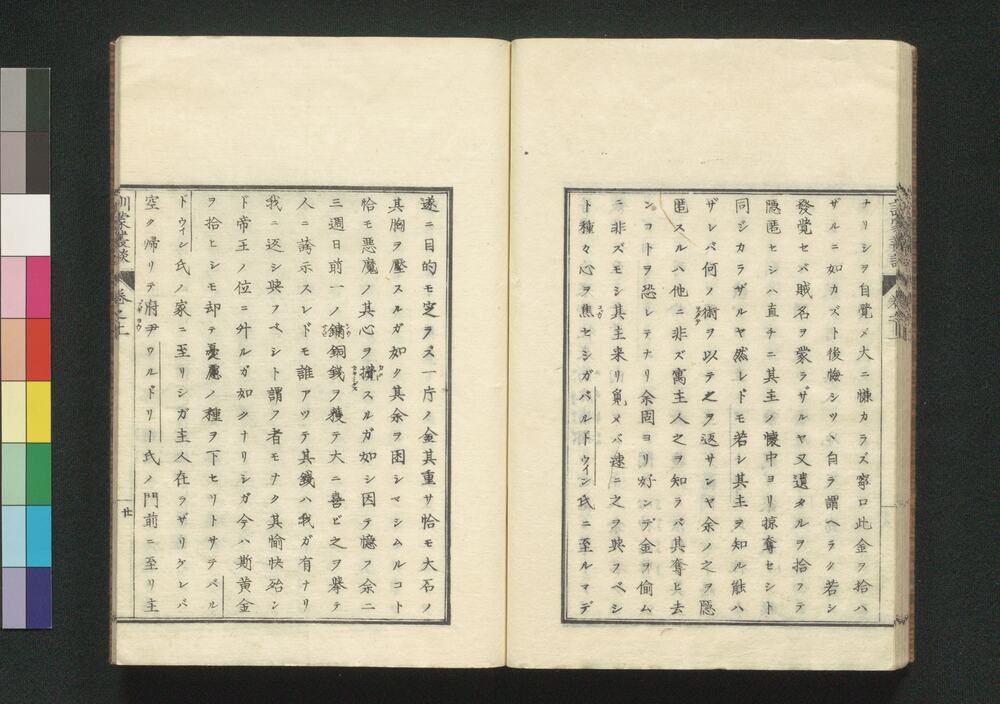 ナリシヲ自覺メ大ニ慊カラズ寧ロ此金ヲ拾ハ
ザルニ如カズト後悔シツヽ自ラ謂ヘラク若シ
發覚セバ賊名ヲ蒙ラザルヤ又遺タルヲ拾フテ
隠匿セシハ直チニ其主ノ懐中ヨリ掠奪セシト
同ジカラザルヤ然レドモ若シ其主ヲ知ル能ハ
ザレバ何ノ術ヲ以テ之ヲ返サンヤ余ノ之ヲ隠
匿スルハ他ニ非ズ寓主人之ヲ知ラバ其奪ヒ去
ンコトヲ恐レテナリ余固ヨリ好ンデ金ヲ偷ム
ニ非ズモシ其主来リ覓メバ速ニ之ヲ與フベシ
ト種々心ヲ焦セシガバルドウィン氏ニ至ルマデ
遂ニ目的モ定ラズ一片ノ金其重サ恰モ大石ノ
其胸ヲ壓スルガ如ク其余ヲ困シマシムルコト
恰モ悪魔ノ其心ヲ攅スルガ如シ因テ憶フ余ニ
三週日前一ノ鏽銅錢ヲ獲テ大ニ喜ビ之ヲ擧テ
人ニ誇示スレドモ誰アツテ其錢ハ我ガ有ナリ
我ニ返シ與フベシト謂フ者モナク其愉快殆ン
ド帝王ノ位ニ外ルガ如クナリシガ今ハ斯黄金
ヲ拾ヒシモ却テ憂慮ノ種ヲ下セリトサテバル
ドウィン氏ノ家ニ至リシガ主人在ラザリケレバ
空ク帰リテ府尹ワルドリー氏ノ門前ニ至リ主
訓蒙叢談
卷之上
廿